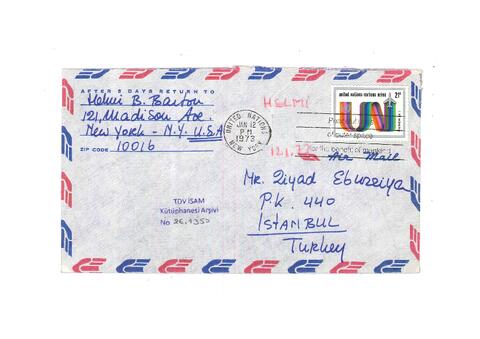 AFTER 5 DAYS RETURN TO
Helmi B. Barton
121, Madison Ave.
New York - N.Y. U.S.A
ZIP CODE 10016
HELMI
UNITED NATIONS
JAN 12
P M
1973
NEW YORK
UNITED NATIONS-NATIONS UNIES
21¢
UN
of outer space
for the benefit of mankind
12.1.73
Air Mail
Mr. Ziyad Ebuzziya
P.K. 440
ISTANBUL
Turkey
TDV İSAM
Kütüphanesi Arşivi
No 2E.1350